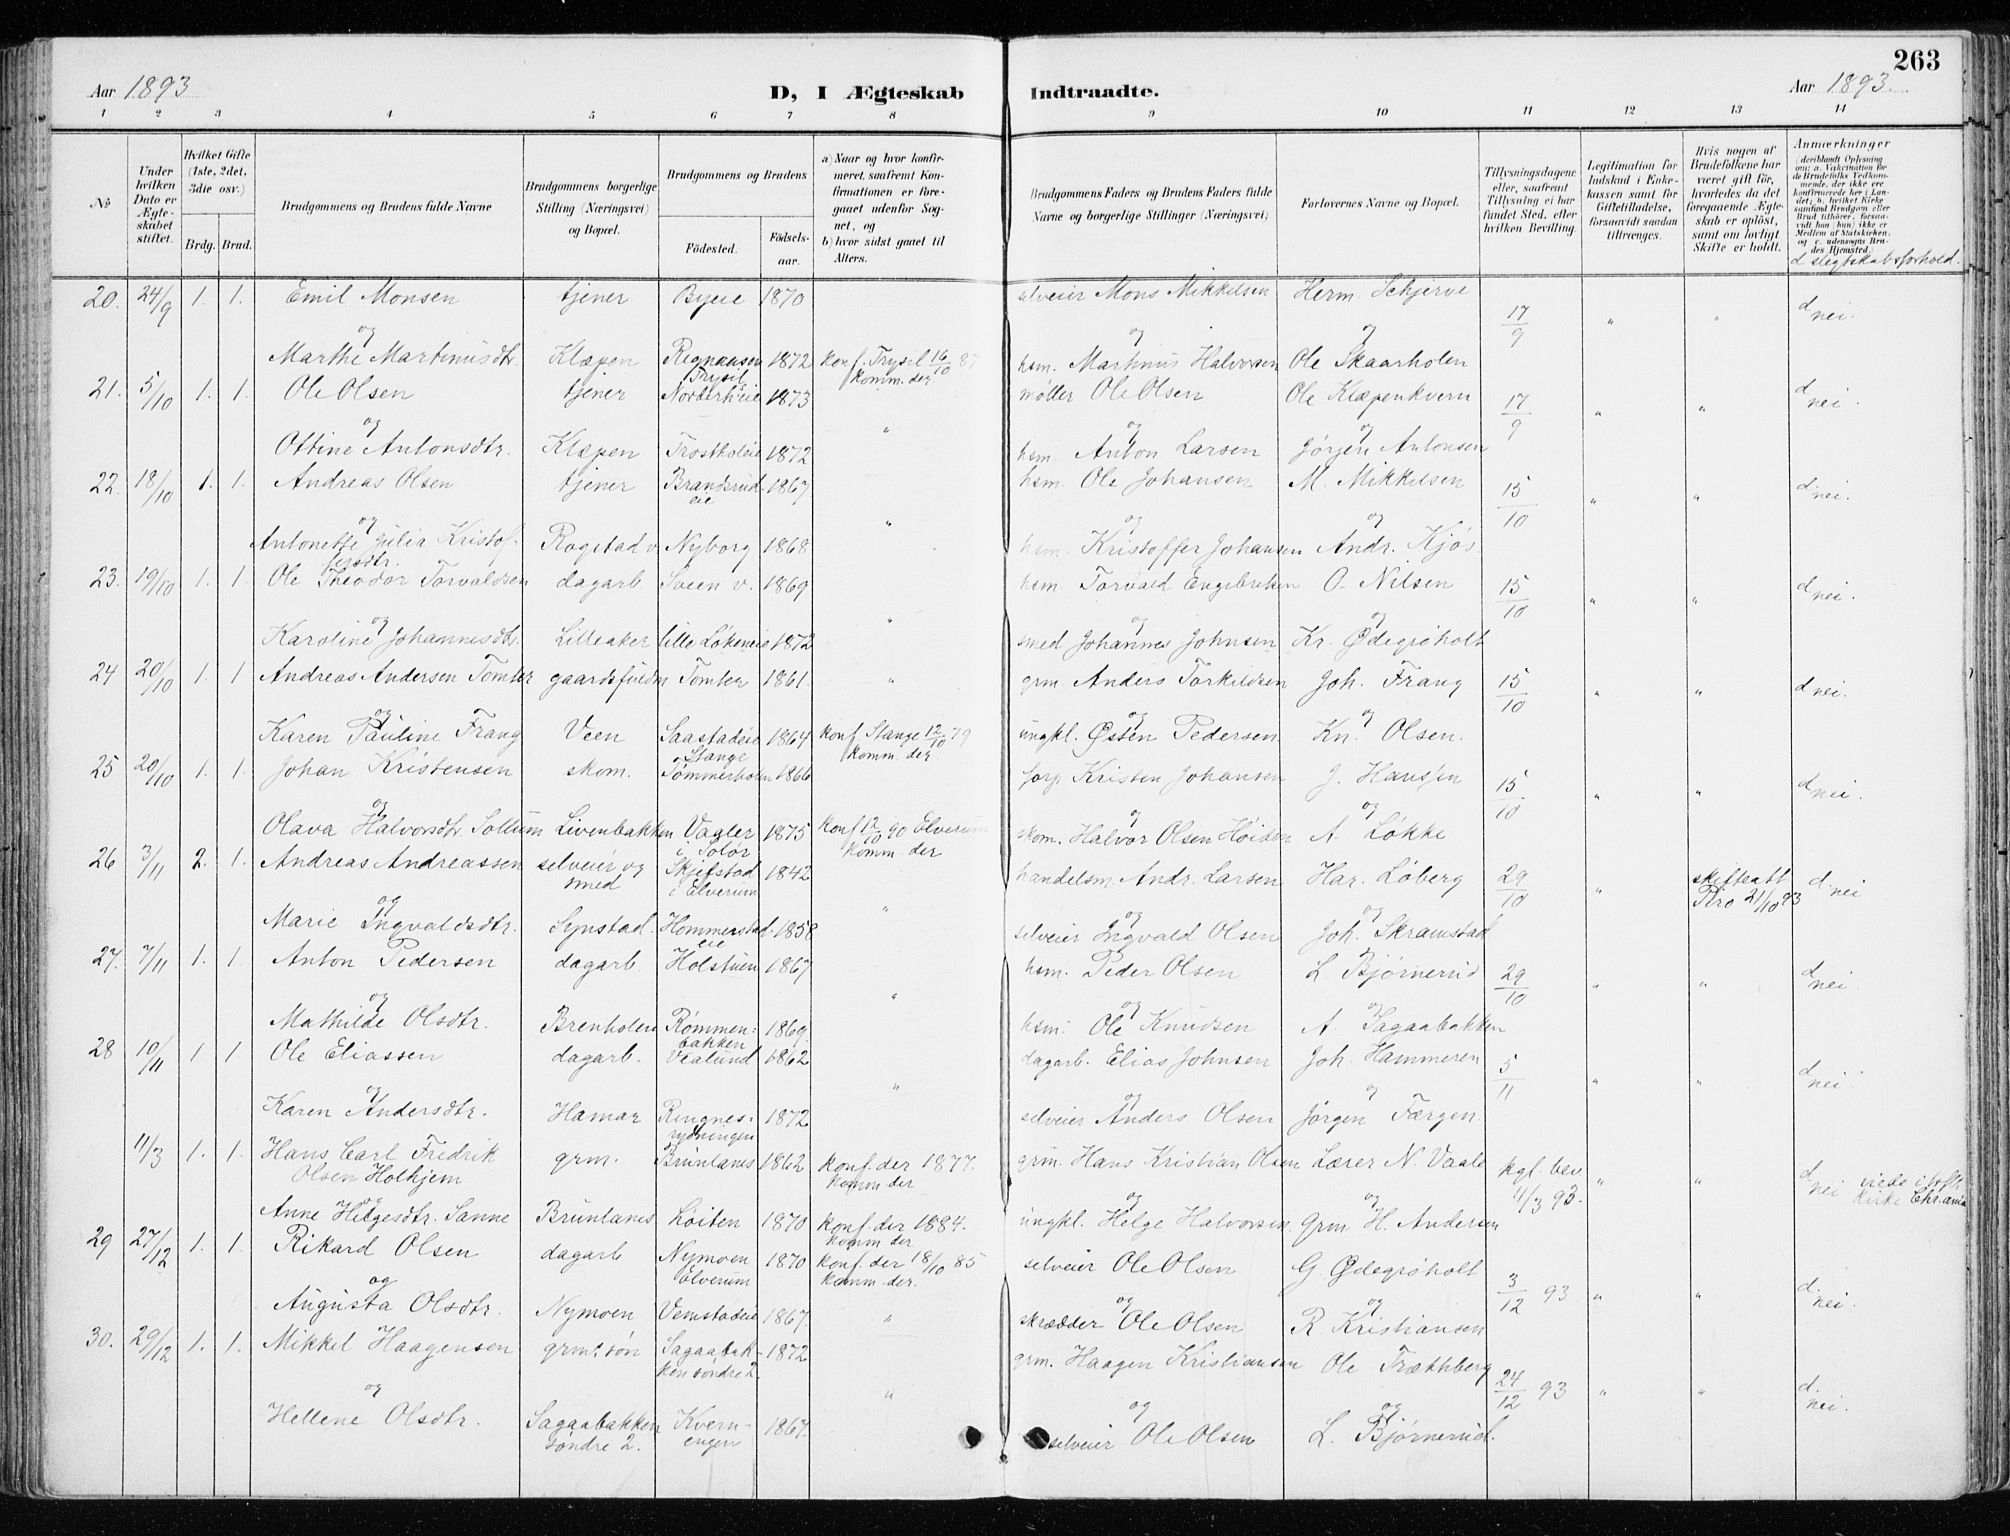 263
Aar 1893
D, I Ægteskab Indtraadte.
Aar 1893.
1 2 3 4 5 6 7 8 9 10 11 12 13 14
№
Under hvilken Dato er Ægteskabet stiftet.
Hvilket Gifte (1ste, 2det, 3die osv.)
Brdg. Brud.
Brudgommens og Brudens fulde Navne
Brudgommens borgerlige Stilling (Næringsvei) og Bopæl.
Brudgommens og Brudens
Fødested.
Fødselsaar.
a) Naar og hvor konfirmeret, saafremt Konfirmationen er foregaaet udenfor Sognet, og
b) hvor sidst gaaet til Alters.
Brudgommens Faders og Brudens Faders fulde Navne og borgerlige Stillinger (Næringsvei)
Forlovernes Navne og Bopæl.
Tillysningsdagene eller, saafremt Tillysning ei har fundet Sted, efter hvilken Bevilling.
Legitimation for Indskud i Enkekassen samt for Giftetilladelse, forsaavidt saadan tiltrænges.
Hvis nogen af Brudefolkene har været gift før, hvorledes da det foregaaende Ægteskab er opløst, samt om lovligt Skifte er holdt.
Anmærkninger
(deriblandt Oplysning om: a. Vakcination for de Brudefolks Vedkommende, der ikke ere konfirmerede her i Landet; b. hvilket Kirkesamfund Brudgom eller Brud tilhører, forsaavidt han (hun) ikke er Medlem af Statskirken, og c. udensogns Brudes Hjemsted.)
d slegtskabsforhold.
20. 24/9 1. 1. Emil Monsen tjener Byeie 1870 selveier Mons Mikkelsen Herm. Schjerve 17/9 " " d nei.
og og og
Marthe Martinusdtr. Klæpen Regnaasen Trysil 1872 konf. Trysil 16/10 87 komm. der. hsm. Martinus Halvorsen Ole Skaarholen
21. 5/10 1. 1. Ole Olsen tjener Norderheie 1873 møller Ole Olsen Ole Klæpenkvern 17/9 " " d nei.
og " og og
Ottine Antonsdtr. Klæpen Trostholeie 1872 hsm. Anton Larsen Jørgen Antonsen
22. 18/10 1. 1. Andreas Olsen tjener Brandsrudeie 1867 hsm. Ole Johansen M. Mikkelsen 15/10 " " d nei.
og " og og
Antonette Julia Kristoffersdtr. Rogstad v. Nyborg 1868 hsm. Kristoffer Johansen Andr. Kjøs.
23. 19/10 1. 1. Ole Theodor Torvaldsen dagarb Sveen v. 1869 hsm. Torvald Engebretsen O. Nilsen 15/10 " " d nei.
og " og og
Karoline Johannesdtr. Lilleaker lille Løkeneie 1872 smed Johannes Johnsen Kr. Ødegrøholt
24 20/10 1. 1 Andreas Andersen Tomter gaardsfuldm Tomter 1861. " grm. Anders Torkildsen Joh. Frang 15/10 " " d nei.
og og og
Karen Pauline Frang Veen Saastadeie Stange 1864 konf Stange 12/10 79 komm. der. ungkl. Østen Pedersen Kn. Olsen.
25 20/10 1. 1. Johan Kristensen skom. Tømmerholen 1866 forp. Kristen Johansen J. Hansen 15/10 " " d nei.
og og og
Olava Halvorsdtr. Sollum Livenbakken Vaaler i Solør 1875 konf 12/10 90 Elverum komm. der skom. Halvor Olsen Høiden A. Løkke
26 3/11 2. 1. Andreas Andreassen selveier og smed Skjefstad i Elverum 1842 handelsm. Andr. Larsen Har. Løberg 29/10 " skifteatt Pro 21/10 93 d. nei
og " og og
Marie Ingvaldsdtr. Synstad. Hommerstad eie 1858 selveier Ingvald Olsen Joh. Skramstad
27. 7/11 1. 1. Anton Pedersen dagarb Holstuen 1867 hsm. Peder Olsen L. Bjørnerud 29/10 " " d nei.
og " og og
Mathilde Olsdtr. Brenholen Rømmenbakken 1869. hsm. Ole Knudsen A. Sagaabakken
28 10/11 1. 1. Ole Eliassen dagarb. Vealund 1862 dagarb. Elias Johnsen Joh. Hammeren 5/11 " " d nei
og " og og
Karen Andersdtr. Hamar Ringnesrydningen 1872 selveier Anders Olsen Jørgen Færgen.
11/3 1. 1. Hans Carl Fredrik Olsen Holhjem grm. Brunlanes 1862 konf. der 1877. komm der grm. Hans Kristian Olsen Lærer N. Vaale kgl. bev 11/3 93. " " d nei viede i Kirke Chrania
og og og
Anne Helgesdtr. Sanne Brunlanes Løiten 1870 konf. der 1884. komm der ungkl. Helge Halvorsen grm H. Andersen
29 27/12 1. 1. Rikard Olsen dagarb Nymoen Elverum 1870 konf. der 18/10 85 komm. der. selveier Ole Olsen G. Ødegrøholt 3/12 93 " " d. nei.
og og og
Augusta Olsdtr. Nymoen Vemstadeie 1867. " skrædder Ole Olsen R. Kristiansen
30. 29/12 1. 1. Mikkel Haagensen grm.søn Sagaabakken søndre 2. 1872 grm. Haagen Kristiansen Ole Træthberg 24/12 93 " " d. nei.
og " og og
Hellene Olsdtr. Sagaabakken søndre 2. Kvernengen 1867. selveier Ole Olsen L. Bjørnerud.